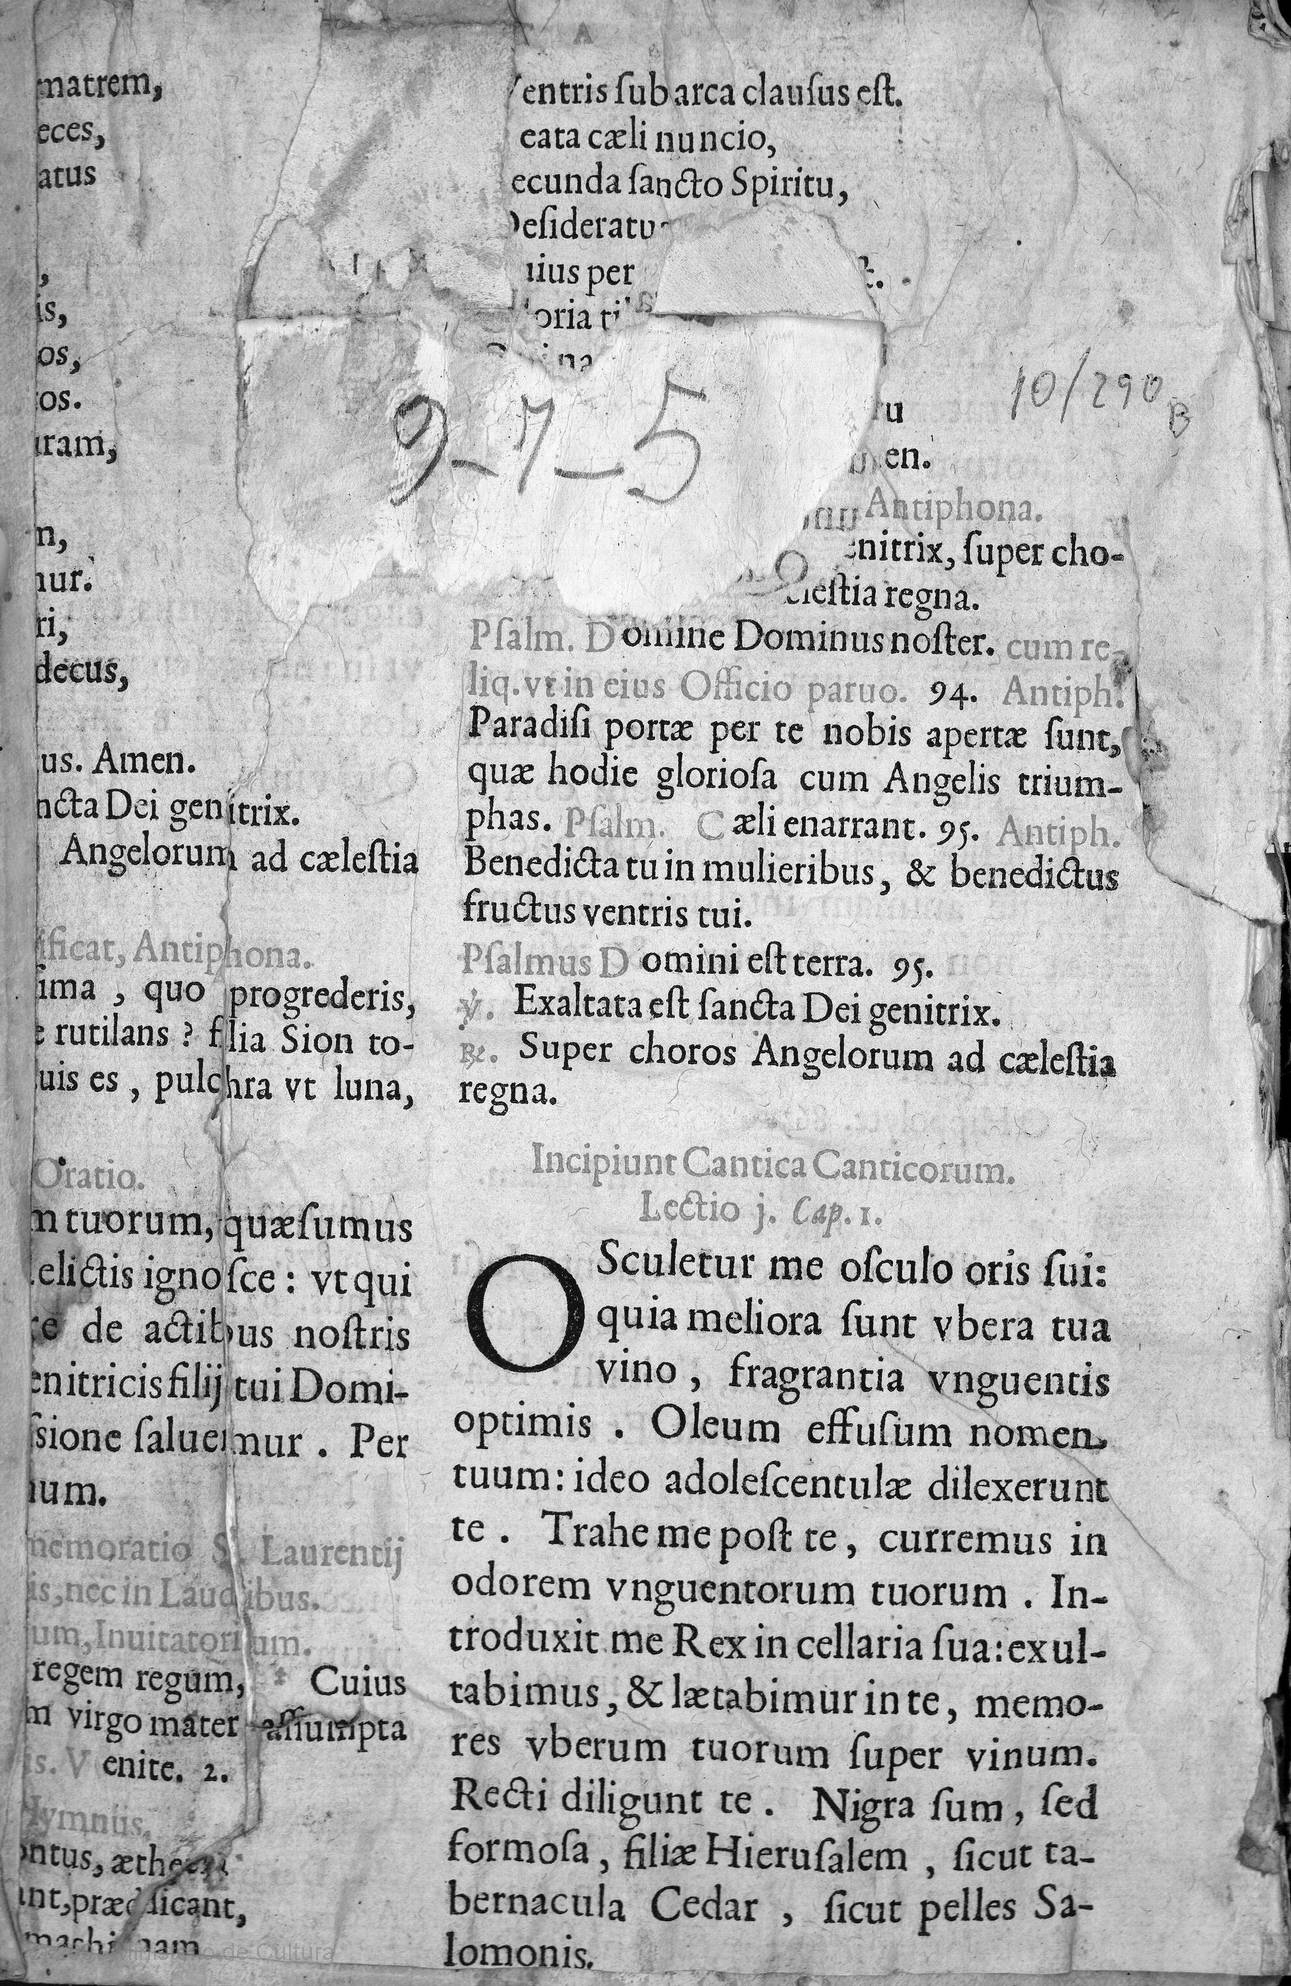 matrem,
eces,
atus
is,
os,
os.
ram,
n,
nur.
ri,
decus,
us. Amen.
ncta Dei genitrix.
Angelorum ad cæleſtia
ificat, Antiphona.
ſima , quo progrederis,
rutilans ? filia Sion to-
uis es , pulchra vt luna,
Oratio.
m tuorum, quæſumus
elictis ignoſce : vt qui
re de actibus noſtris
enitricis filij tui Domi-
ſsione ſaluemur . Per
num.
memoratio S. Laurentij
is, nec in Laudibus.
um, Inuitatorium.
regem regum, * Cuius
m virgo mater aſſumpta
is. V enite. 2.
Hymnus.
ontus, æthera
ant, prædicant,
machinam
entris ſub arca clauſus eſt.
eata cæli nuncio,
ecunda ſancto Spiritu,
Deſideratus
uius per
oria ti
9-7-5
10/290
B
en.
Antiphona.
enitrix, ſuper cho-
leſtia regna.
Pſalm. Domine Dominus noſter. cum re-
liq. vt in eius Officio paruo. 94. Antiph.
Paradiſi portæ per te nobis apertæ ſunt,
quæ hodie glorioſa cum Angelis trium-
phas. Pſalm. Cæli enarrant. 95. Antiph.
Benedicta tu in mulieribus, & benedictus
fructus ventris tui.
Pſalmus Domini eſt terra. 95.
℣. Exaltata eſt ſancta Dei genitrix.
℟. Super choros Angelorum ad cæleſtia
regna.
Incipiunt Cantica Canticorum.
Lectio j. Cap. 1.
OSculetur me oſculo oris ſui:
quia meliora ſunt vbera tua
vino , fragrantia vnguentis
optimis . Oleum effuſum nomen
tuum: ideo adoleſcentulæ dilexerunt
te . Trahe me poſt te , curremus in
odorem vnguentorum tuorum . In-
troduxit me Rex in cellaria ſua: exul-
tabimus, & lætabimur in te, memo-
res vberum tuorum ſuper vinum.
Recti diligunt te . Nigra ſum , ſed
formoſa , filiæ Hieruſalem , ſicut ta-
bernacula Cedar , ſicut pelles Sa-
lomonis.
Ministerio de Cultura